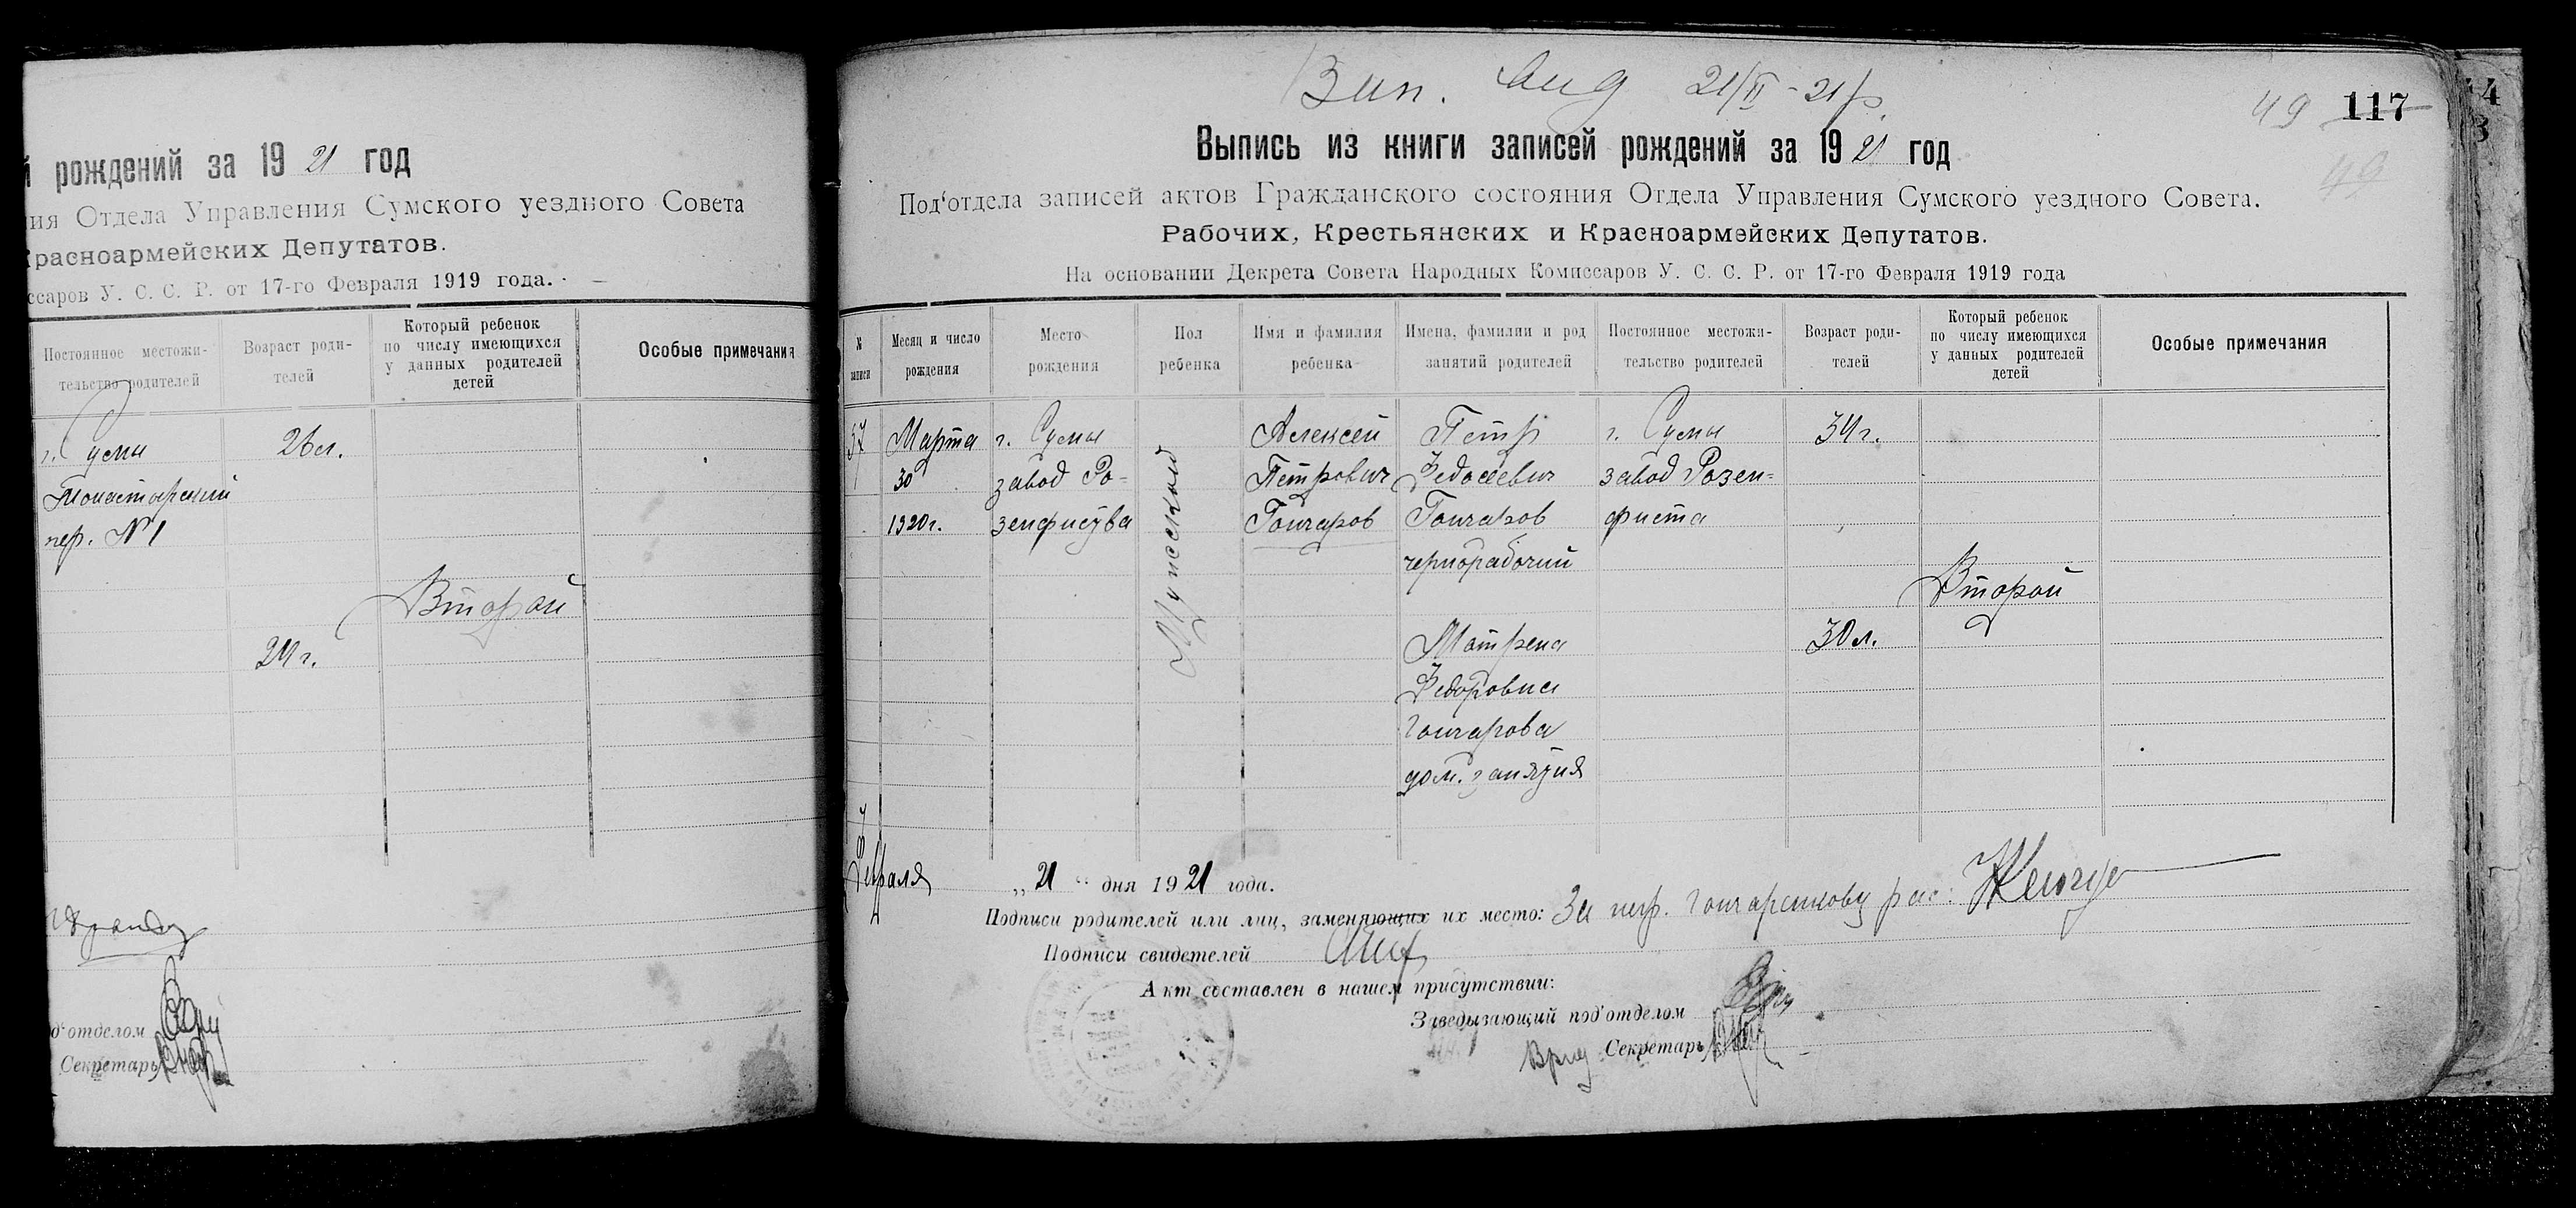 рождений за 1921 год
ния Отдела Управления Сумского уездного Совета
Красноармейских Депутатов.
ссаров У. С. С. Р. от 17-го Февраля 1919 года.
Постоянное местожи-
тельство родителей
Возраст роди-
телей
Который ребенок
по числу имеющихся
у данных родителей
детей
Особые примечания
г. Сумы
26 л.
пер. № 1
Второй
24 г.
д'отделом
Секретарь
21/II - 21 р.
49 117
49
Выпись из книги записей рождений за 1921 год
Под'отдела записей актов Гражданского состояния Отдела Управления Сумского уездного Совета.
Рабочих, Крестьянских и Красноармейских Депутатов.
На основании Декрета Совета Народных Комиссаров У. С. С. Р. от 17-го Февраля 1919 года
№
записи
Месяц и число
рождения
Место
рождения
Пол
ребенка
Имя и фамилия
ребенка
Имена, фамилии и род
занятий родителей
Постоянное местожи-
тельство родителей
Возраст роди-
телей
Который ребенок
по числу имеющихся
у данных родителей
детей
Особые примечания
37
Марта
30
1920 г.
г. Сумы
завод Ро-
Мужской
Алексей
Петрович
Гончаров
Петр
Федосеевич
Гончаров
чернорабочий
Матрена
Федоровна
Гончарова
дом. занятия
г. Сумы
завод Розен-
фиста
34 г.
30 л.
Второй
Февраля „21“ дня 1921 года.
Подписи родителей или лиц, заменяющих их место: За негр. рас:
Подписи свидетелей
Акт составлен в нашем присутствии:
Заведывающий под'отделом
Врид Секретарь